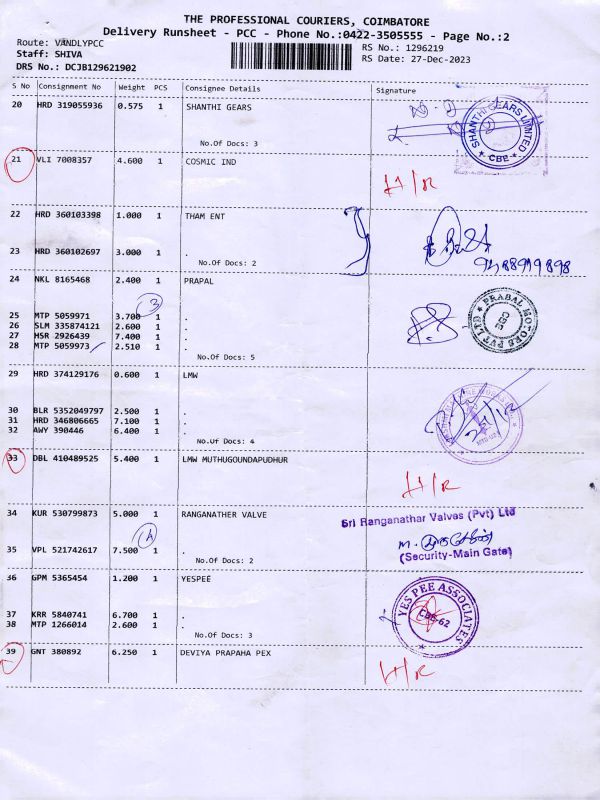 THE PROFESSIONAL COURIERS, COIMBATORE
Delivery Runsheet - PCC - Phone No.:0422-3505555 - Page No.:2
Route: VANDLYPCC
Staff: SHIVA
DRS No.: DCJB129621902
RS No.: 1296219
RS Date: 27-Dec-2023
S No Consignment No Weight PCS Consignee Details Signature
20 HRD 319055936 0.575 1 SHANTHI GEARS
No.Of Docs: 3
SHANTHI GEARS LIMITED
* CBE *
21 VLI 7008357 4.600 1 COSMIC IND
H/R
22 HRD 360103398 1.000 1 THAM ENT
23 HRD 360102697 3.000 1 .
No.Of Docs: 2
24 NKL 8165468 2.400 1 PRAPAL
3
25 MTP 5059971 3.700 1 .
26 SLM 335874121 2.600 1 .
27 HSR 2926439 7.400 1 .
28 MTP 5059973 2.510 1 .
No.Of Docs: 5
PRABAL MOTORS PVT LTD
CBE
29 HRD 374129176 0.600 1 LMW
30 BLR 5352049797 2.500 1 .
31 HRD 346806665 7.100 1 .
32 AWY 390446 6.400 1 .
No.Of Docs: 4
33 DBL 410489525 5.400 1 LMW MUTHUGOUNDAPUDHUR
H/R
34 KUR 530799873 5.000 1 RANGANATHER VALVE
Sri Ranganathar Valves (Pvt) Ltd
(Security-Main Gate)
35 VPL 521742617 7.500 1 .
No.Of Docs: 2
36 GPM 5365454 1.200 1 YESPEE
37 KRR 5840741 6.700 1 .
38 MTP 1266014 2.600 1 .
No.Of Docs: 3
YES PEE ASSOCIATES
CBE-62
39 GNT 380892 6.250 1 DEVIYA PRAPAHA PEX
H/R